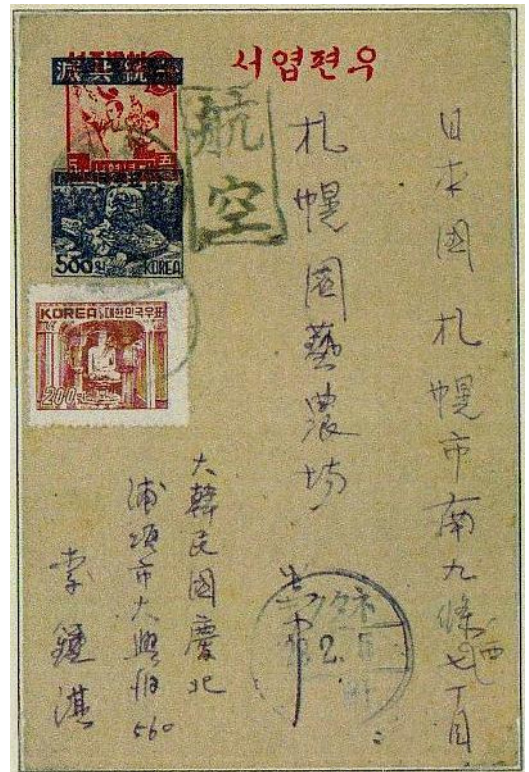 우편엽서
滅共統
500원 KOREA
KOREA 대한민국우표
200원
航空
日本國札幌市南九條西七丁目
札幌園藝農場
大韓民國慶北
浦項市大興洞560
李鍾淇